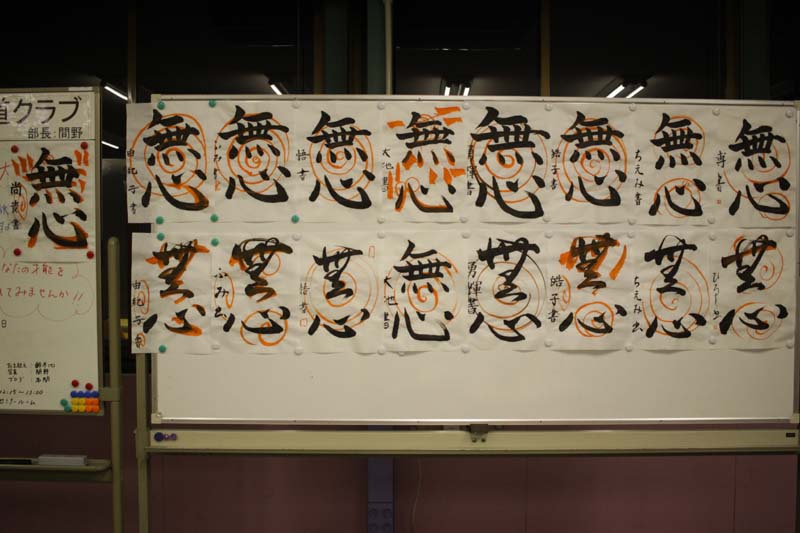 道クラブ
部長:間野
無心
尚貴書
なたの才能を
てみませんか!!
12:15〜13:00
無心
由紀子書
無心
ふみ書
無心
悟書
無心
大池書
無心
勇輝書
無心
皓子書
無心
ちえみ書
無心
無心
由紀子書
無心
ふみ書
無心
悟書
無心
大池書
無心
勇輝書
無心
皓子書
無心
ちえみ書
無心